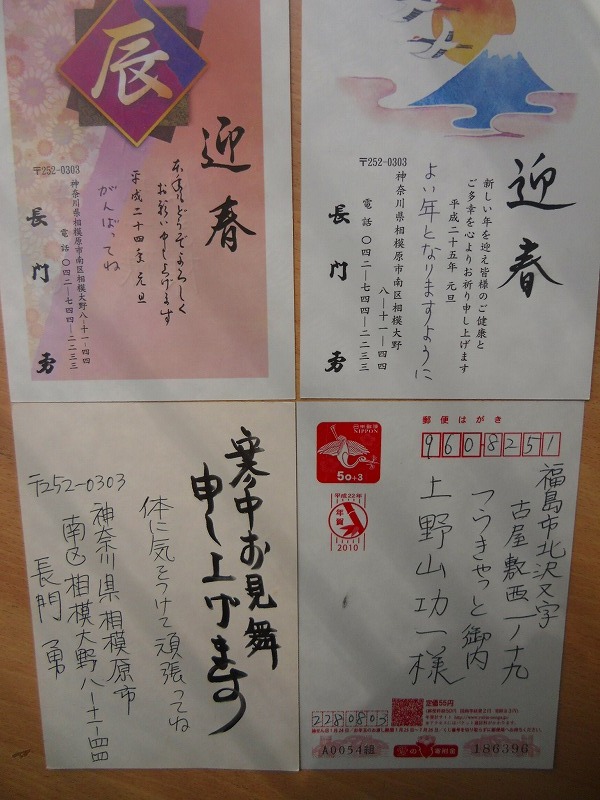 辰
迎春
本年もどうぞよろしく
お願い申し上げます
平成二十四年 元旦
がんばってね
〒252-0303
神奈川県相模原市南区相模大野八ー十一ー四四
電話 〇四二ー七四四ー二二三三
長門勇
迎春
新しい年を迎え皆様のご健康と
ご多幸を心よりお祈り申し上げます
平成二十五年 元旦
よい年となりますように
〒252-0303
神奈川県相模原市南区相模大野
八ー十一ー四四
電話 〇四二ー七四四ー二二三三
長門勇
寒中お見舞
申し上げます
体に気をつけて頑張ってね
〒252-0303
神奈川県相模原市
南区相模大野八ー十一ー四四
長門勇
郵便はがき
日本郵便
NIPPON
50+3
平成22年
年賀
2010
9608251
福島市北沢又字
古屋敷西一ノ十九
つうきゃっと 御内
上野山功一様
定価55円
2280803
A0054組
186396